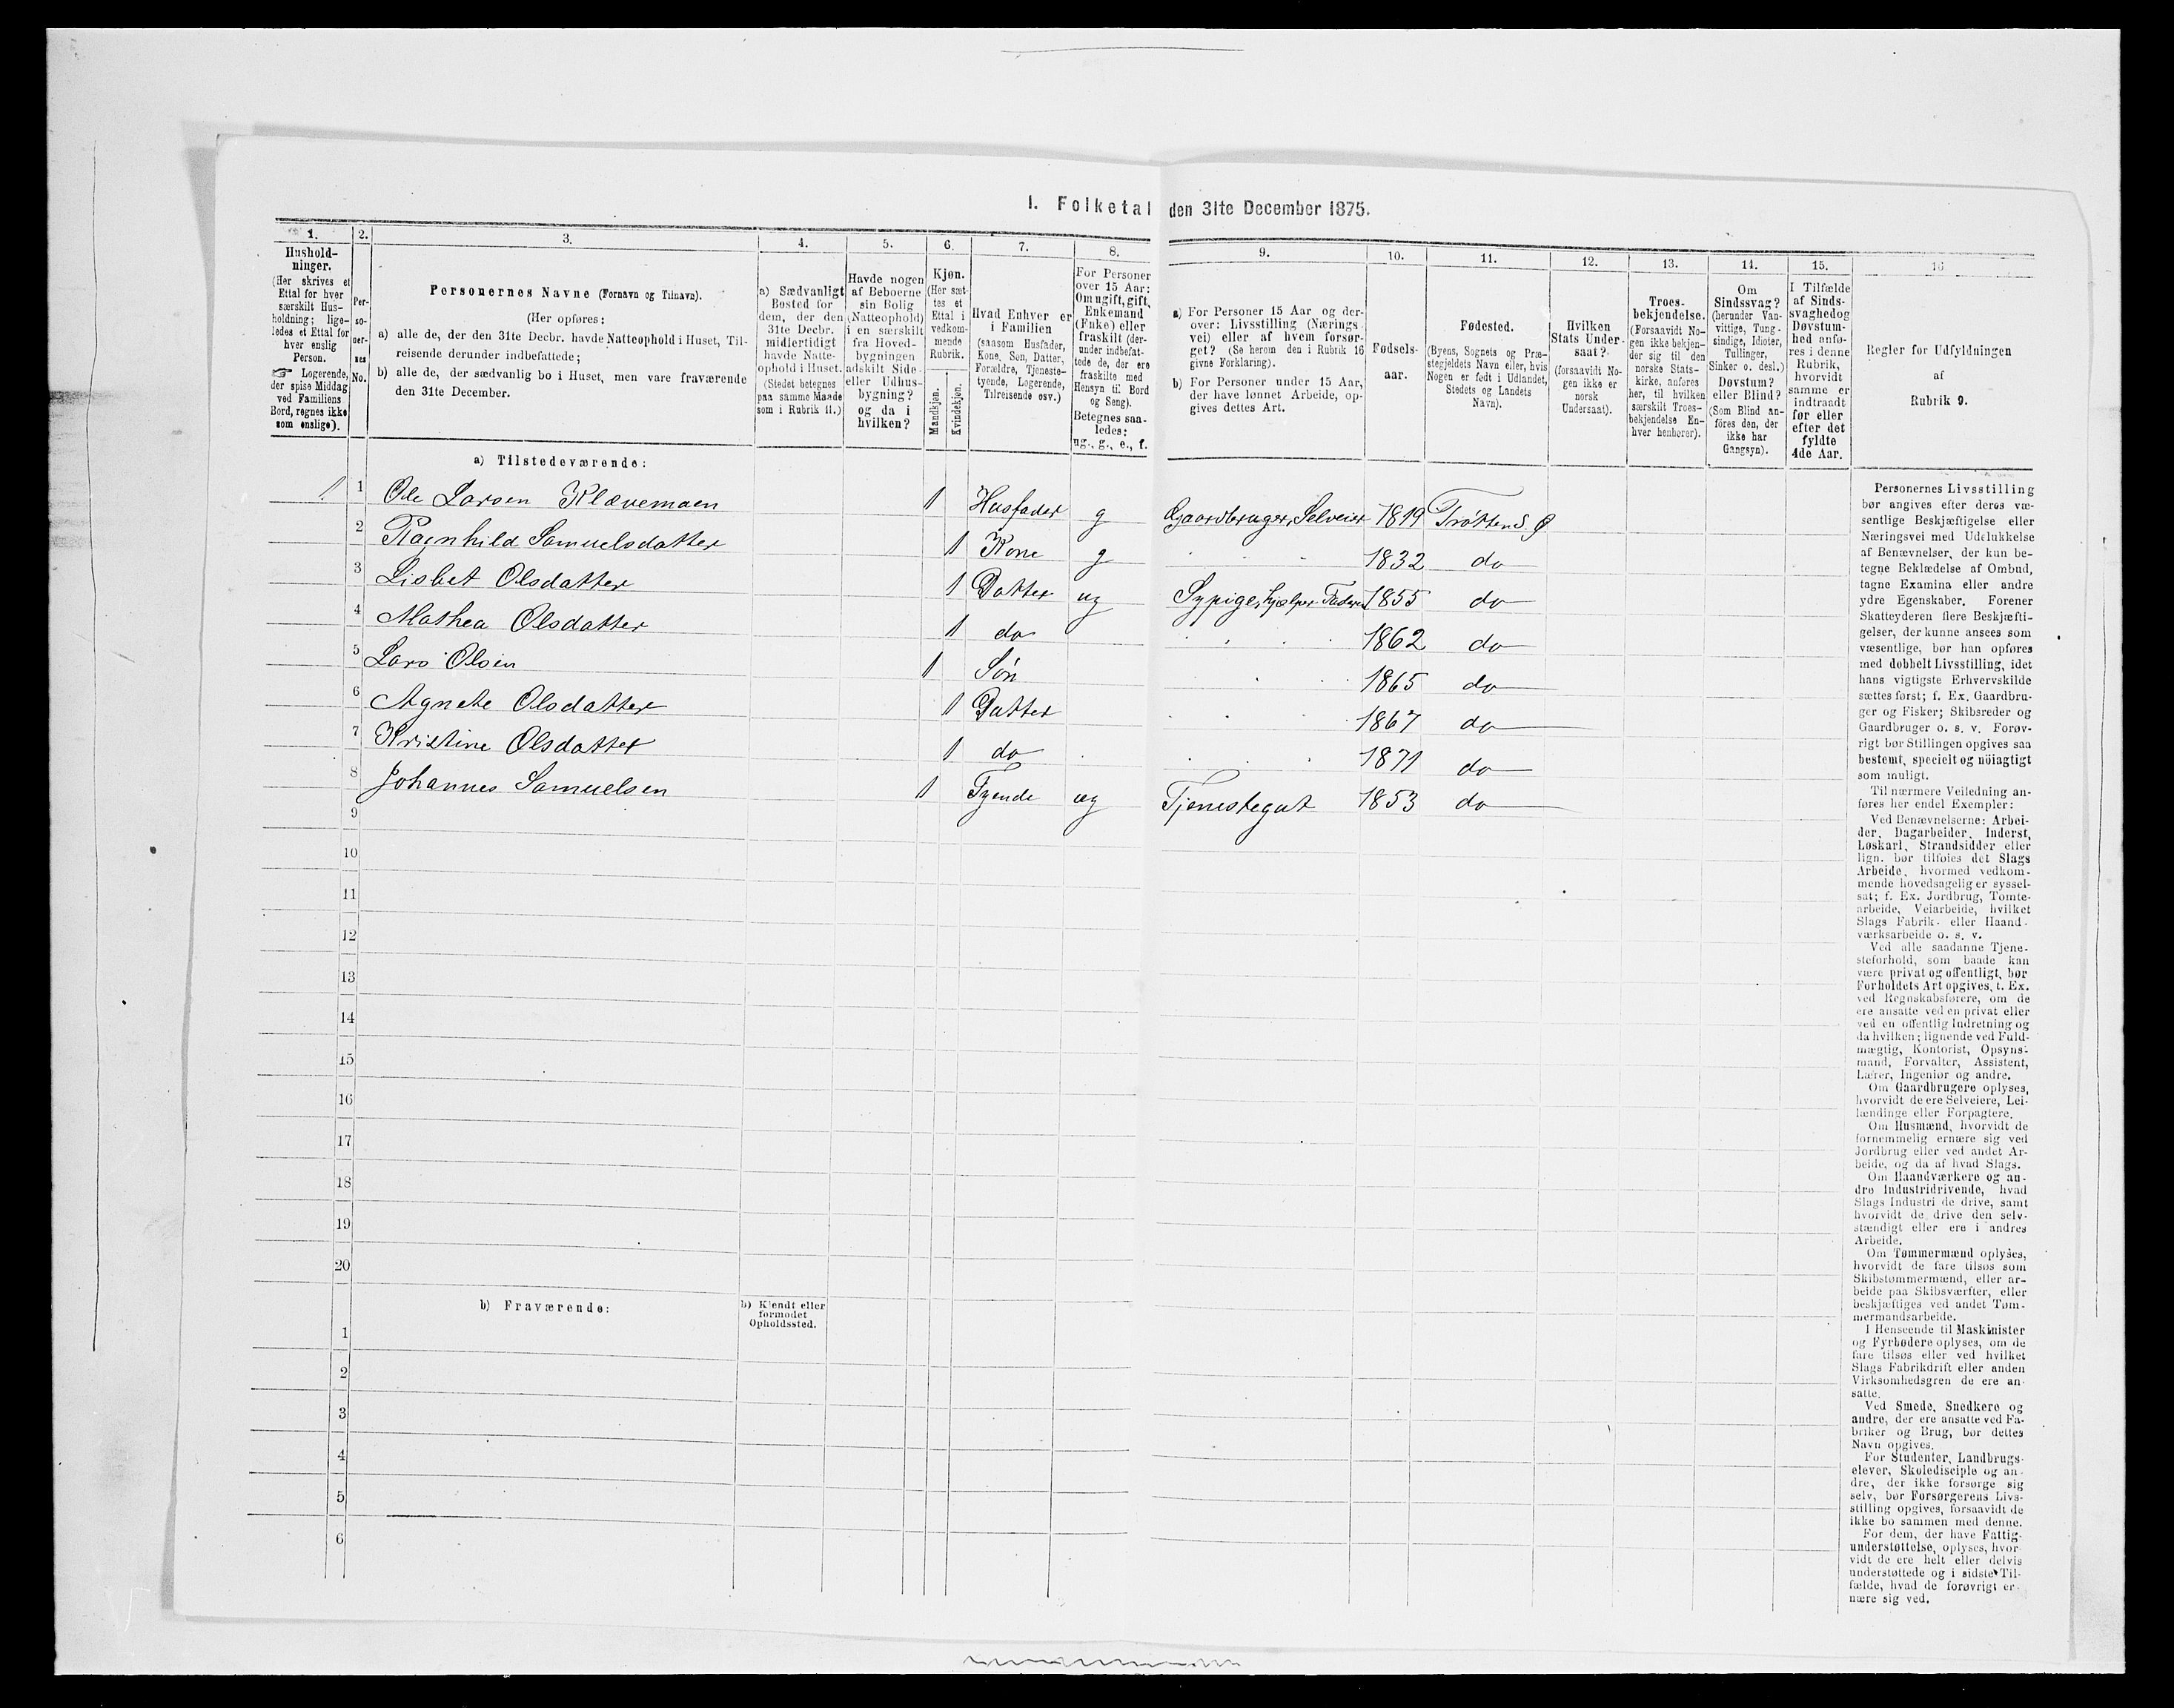 1. Folketal den 31te December 1875.
1. 2. 3. 4. 5. 6. 7. 8. 9. 10. 11. 12. 13. 14. 15. 16
Hushold-
ninger.
(Her skrives et
Ettal for hver
særskilt Hus-
holdning; lige-
ledes et Ettal for
hver enslig
Person.
☞ Logerende,
der spise Middag
ved Familiens
Bord, regnes ikke
som enslige).
Per-
so-
ner-
nes
No.
Personernes Navne (Fornavn og Tilnavn).
(Her opføres:
a) alle de, der den 31te Decbr. havde Natteophold i Huset, Til-
reisende derunder indbefattede;
b) alle de, der sædvanlig bo i Huset, men vare fraværende
den 31te December.
a) Sædvanligt
Bosted for
dem, der den
31te Decbr.
midlertidigt
havde Natte-
ophold i Huset.
(Stedet betegnes
paa samme Maade
som i Rubrik 11.)
Havde nogen
af Beboerne
sin Bolig
(Natteophold)
i en særskilt
fra Hoved-
bygningen
adskilt Side-
eller Udhus-
bygning?
og da i
hvilken?
Kjøn.
(Her sæt-
tes et
Ettal i
vedkom-
mende
Rubrik.
Mandkjøn.
Kvindekjøn.
Hvad Enhver er
i Familien
(saasom Husfader,
Kone, Søn, Datter,
Forældre, Tjeneste-
tyende, Logerende,
Tilreisende osv.)
For Personer
over 15 Aar:
Om ugift, gift,
Enkemand
(Enke) eller
fraskilt (der-
under indbefat-
tede de, der ere
fraskilte med
Hensyn til Bord
og Seng).
Betegnes saa-
ledes:
ug., g., e., f.
a) For Personer 15 Aar og der-
over: Livsstilling (Nærings-
vei) eller af hvem forsør-
get? (Se herom den i Rubrik 16
givne Forklaring).
b) For Personer under 15 Aar,
der have lønnet Arbeide, op-
gives dettes Art.
Fødsels-
aar.
Fødested.
(Byens, Sognets og Præ-
stegjeldets Navn eller, hvis
Nogen er født i Udlandet,
Stedets og Landets
Navn).
Hvilken
Stats Under-
saat?
(forsaavidt No-
gen ikke er
norsk
Undersaat).
Troes-
bekjendelse.
(Forsaavidt No-
gen ikke bekjen-
der sig til den
norske Stats-
kirke, anføres
her, til hvilken
særskilt Troes-
bekjendelse En-
hver henhører).
Om
Sindssvag?
(herunder Van-
vittige, Tung-
sindige, Idioter,
Tullinger,
Sinker o. desl.)
Døvstum?
eller Blind?
(Som Blind an-
føres den, der
ikke har
Gangsyn).
I Tilfælde
af Sinds-
svaghed og
Døvstum-
hed anfø-
res i denne
Rubrik,
hvorvidt
samme er
indtraadt
før eller
efter det
fyldte
4de Aar.
Regler for Udfyldningen
af
Rubrik 9.
a) Tilstedeværende:
1 1 Ole Larsen Klævemoen 1 Husfader g Gaardbruger, Selveier 1819 Trötten S. Ø
2 Ragnhild Samuelsdatter 1 Kone g 1832 do
3 Lisbet Olsdatter 1 Datter ug Sypige, hjælper Faderen 1855 do
4 Mathea Olsdatter 1 do 1862 do
5 Lars Olsen 1 Sön 1865 do
6 Agnete Olsdatter 1 Datter 1867 do
7 Kristine Olsdatter 1 do 1871 do
8 Johannes Samuelsen 1 Tyende ug Tjenestegut 1853 do
9
10
11
12
13
14
15
16
17
18
19
20
b) Fraværende:
b) Kjendt eller
formodet
Opholdssted.
1
2
3
4
5
6
Personernes Livsstilling
bør angives efter deres væ-
sentlige Beskjæftigelse eller
Næringsvei med Udelukkelse
af Benævnelser, der kun be-
tegne Beklædelse af Ombud,
tagne Examina eller andre
ydre Egenskaber. Forener
Skatteyderen flere Beskjæfti-
gelser, der kunne ansees som
væsentlige, bør han opføres
med dobbelt Livsstilling, idet
hans vigtigste Erhvervskilde
sættes først; f. Ex. Gaardbru-
ger og Fisker; Skibsreder og
Gaardbruger o. s. v. Forøv-
rigt bør Stillingen opgives saa
bestemt, specielt og nöiagtigt
som muligt.
Til nærmere Veiledning an-
føres her endel Exempler:
Ved Benævnelserne: Arbei-
der, Dagarbeider, Inderst,
Løskarl, Strandsidder eller
lign. bør tilføies det Slags
Arbeide, hvormed vedkom-
mende hovedsagelig er syssel-
sat; f. Ex. Jordbrug, Tomte-
arbeide, Veiarbeide, hvilket
Slags Fabrik- eller Haand-
værksarbeide o. s. v.
Ved alle saadanne Tjene-
steforhold, som baade kan
være privat og offentligt, bør
Forholdets Art opgives, t. Ex.
ved Regnskabsførere, om de
ere ansatte ved en privat eller
ved en offentlig Indretning og
da hvilken; lignende ved Fuld-
mægtig, Kontorist, Opsyns-
mand, Forvalter, Assistent,
Lærer, Ingeniør og andre.
Om Gaardbrugere oplyses,
hvorvidt de ere Selveiere, Lei-
lændinge eller Forpagtere.
Om Husmænd, hvorvidt de
fornemmelig ernære sig ved
Jordbrug eller ved andet Ar-
beide, og da af hvad Slags.
Om Haandværkere og an-
dre Industridrivende, hvad
Slags Industri de drive, samt
hvorvidt de drive den selv-
stændigt eller ere i andres
Arbeide.
Om Tømmermænd oplyses,
hvorvidt de fare tilsøs som
Skibstømmermænd, eller ar-
beide paa Skibsværfter, eller
beskjæftiges ved andet Tøm-
mermandsarbeide.
I Henseende til Maskinister
og Fyrbødere oplyses, om de
fare tilsøs eller ved hvilket
Slags Fabrikdrift eller anden
Virksomhedsgren de ere an-
satte.
Ved Smede, Snedkere og
andre, der ere ansatte ved Fa-
briker og Brug, bør dettes
Navn opgives.
For Studenter, Landbrugs-
elever, Skoledisciple og an-
dre, der ikke forsørge sig
selv, bør Forsørgerens Livs-
stilling opgives, forsaavidt de
ikke bo sammen med denne.
For dem, der have Fattig-
understøttelse, oplyses, hvor-
vidt de ere helt eller delvis
understøttede og i sidste Til-
fælde, hvad de forøvrigt er-
nære sig ved.